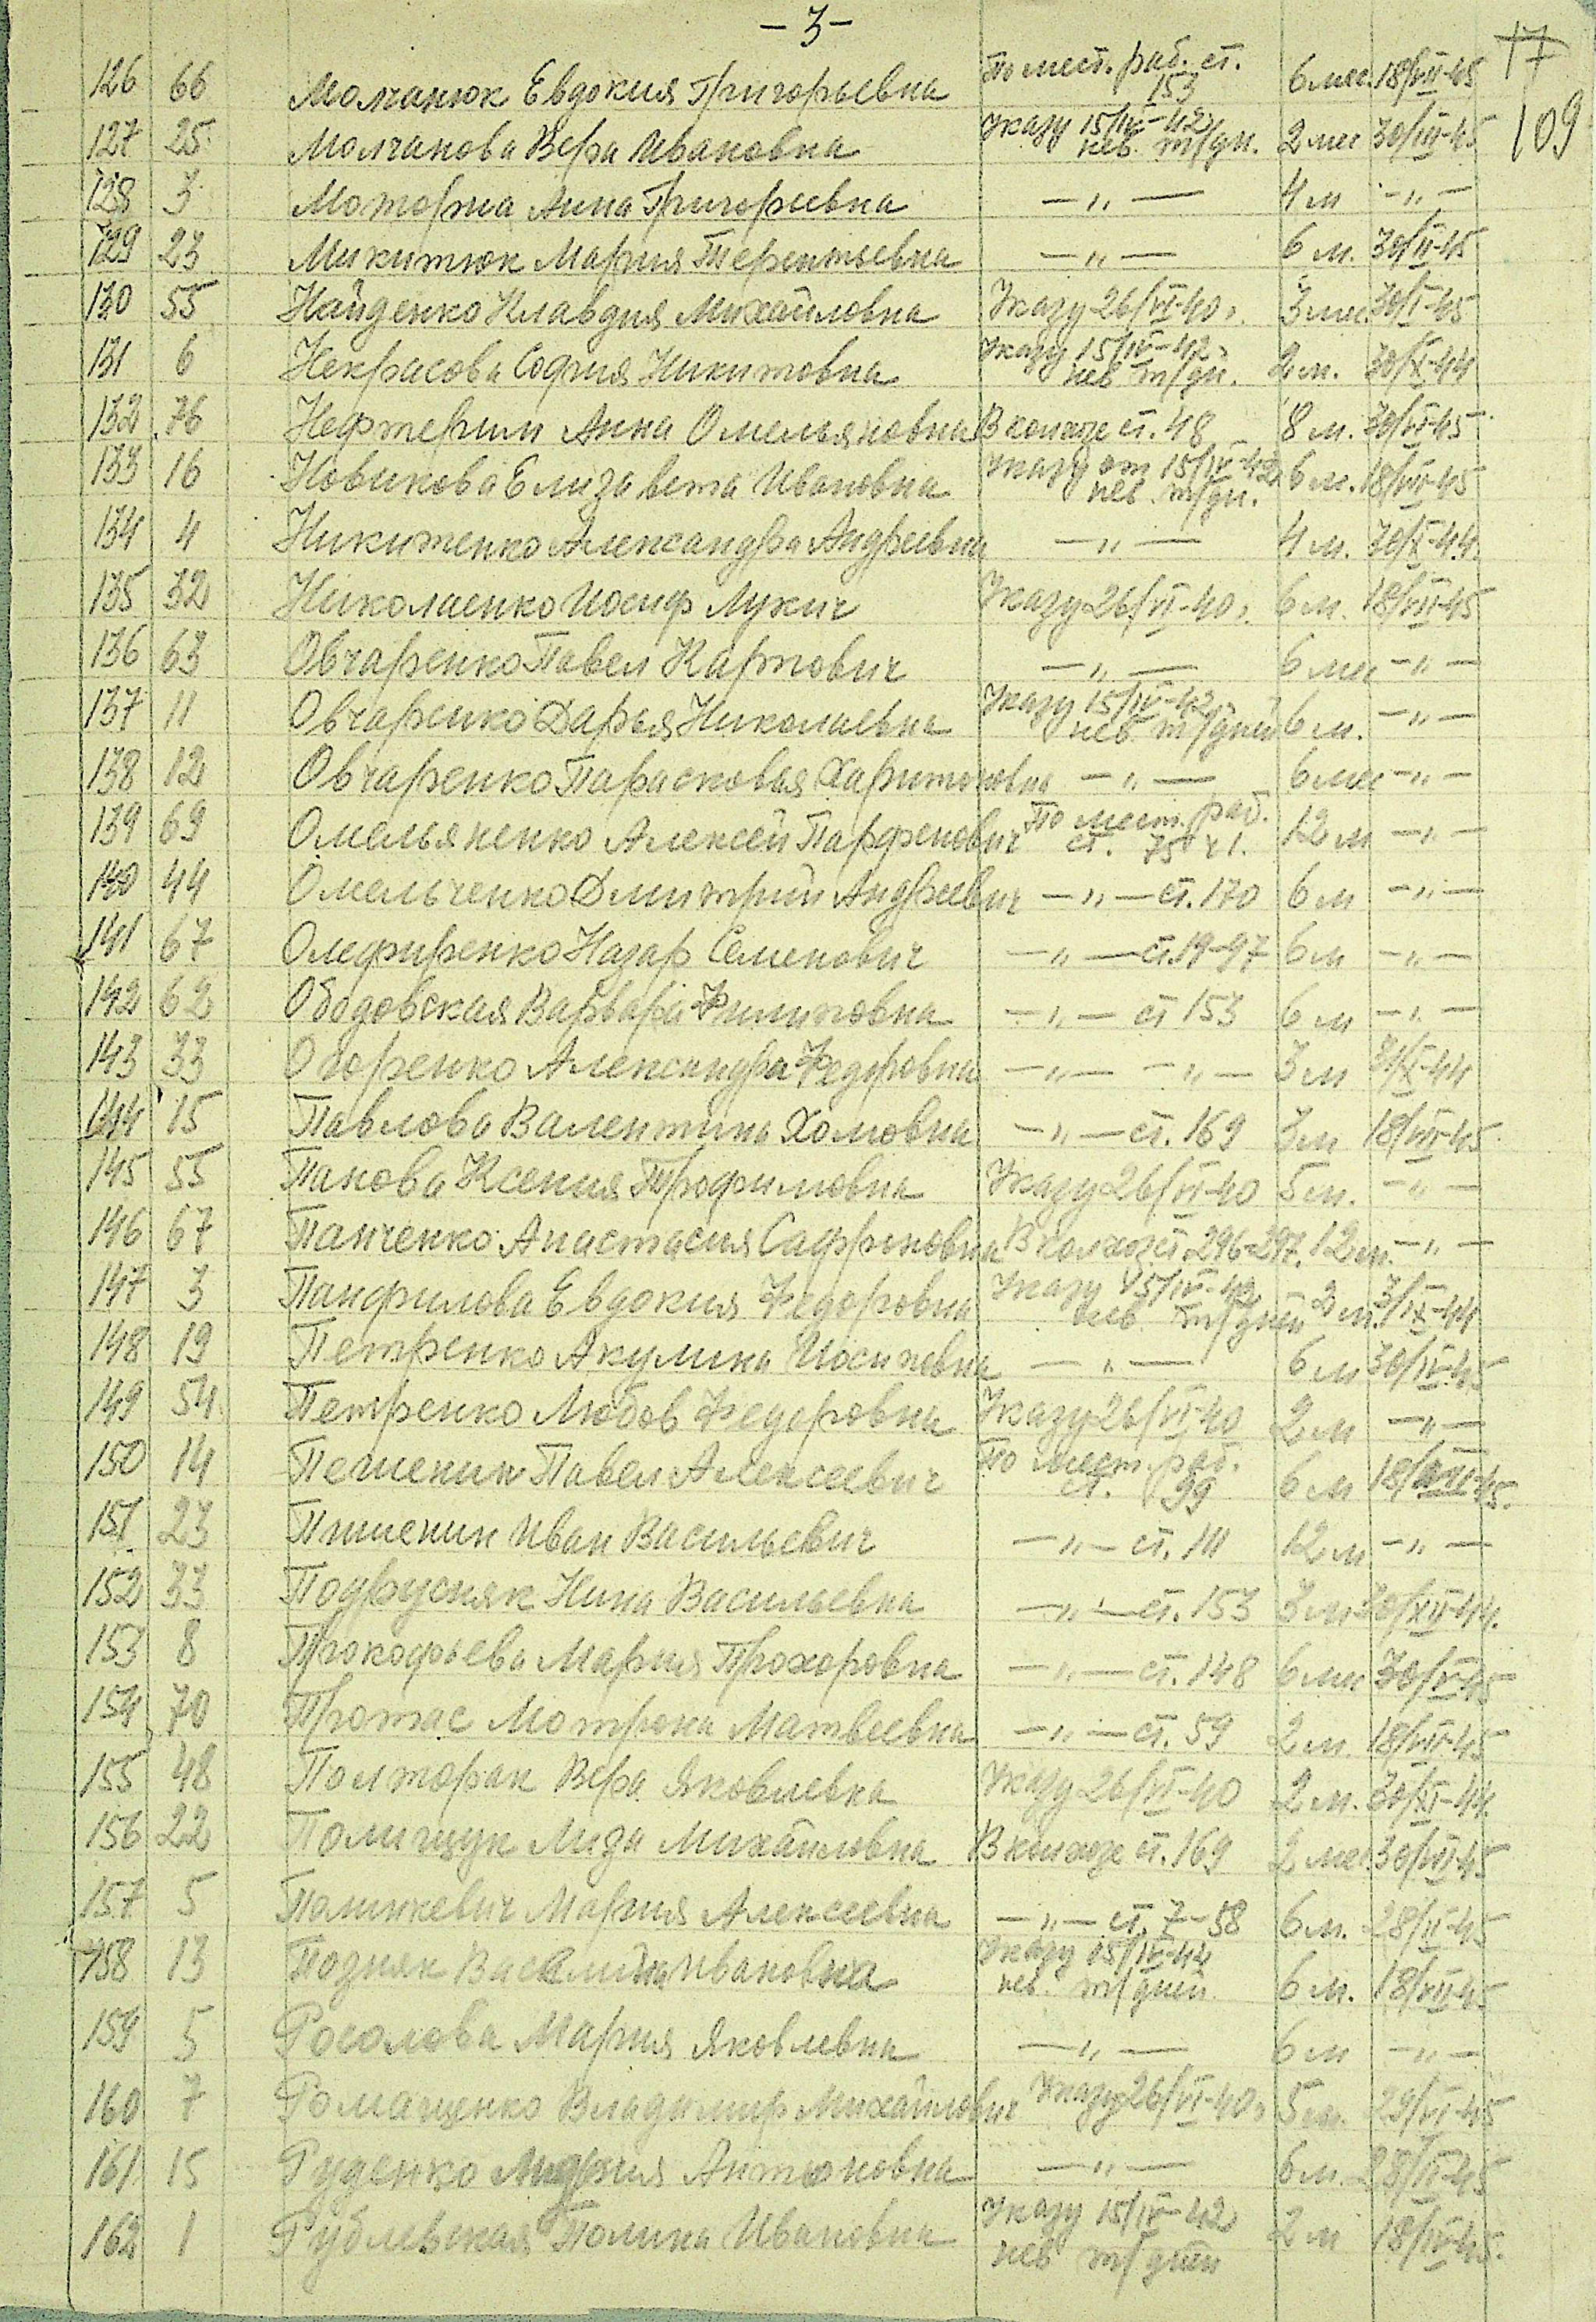 -3-
17
109
126 66 Молчанюк Евдокия Григорьевна По мест. раб. ст. 153 6 мес. 18/VII-45
127 25 Молчанова Вера Ивановна Указу 15/IV-42 нев. т/дн. 2 мес 30/III-45
128 3 Моторна Анна Григорьевна —"— 4 м —"—
129 23 Микитюк Мария Терентьевна —"— 6 м. 30/VI-45
130 55 Найденко Клавдия Михайловна Указу 26/VI-40г. 3 мес. 30/I-45
131 6 Некрасова София Никитовна Указу 15/IV-42г. нев. т/дн. 2 м. 30/X-44
132 76 Нефтерим Анна Омельяновна В колхозе ст. 48 8 м. 30/VI-45
133 16 Новикова Елизавета Ивановна Указу от 15/IV-42г нев. т/дн. 6 м. 18/VII-45
134 4 Никитенко Александра Андреевна —"— 4 м. 30/X-44.
135 32 Николаенко Иосиф Лукич Указу 26/VI-40г. 6 м. 18/VII-45
136 63 Овчаренко Павел Карпович —"— 6 мес —"—
137 11 Овчаренко Дарья Николаевна Указу 15/IV-42г. нев. т/дней 6 м. —"—
138 12 Овчаренко Парасковья Харитоновна —"— 6 мес —"—
139 69 Омельяненко Алексей Парфенович По мест. раб. ст. 75 ч 1. 12 м —"—
140 44 Омельченко Дмитрий Андреевич —"— ст. 170 6 м —"—
141 67 Олефиренко Назар Семенович —"— ст. 19-97 6 м —"—
142 62 Ободовская Варвара Филиповна —"— ст 153 6 м —"—
143 33 Огоренко Александра Федоровна —"— —"— 3 м 31/X-44
144 15 Павлова Валентина Хомовна —"— ст. 169 3 м 18/VII-45.
145 55 Панова Ксения Трофимовна Указу 26/VI-40 5 м. —"—
146 67 Панченко Анастасия Сафроновна В колхоз ст 296-297. 12 м. —"—
147 3 Панфилова Евдокия Федоровна Указу 15/IV-42 нев. т/дней 2 м. 3/IX-44
148 19 Петренко Акулина Иосиповна —"— 6 м 30/IV-45
149 54 Петренко Любов Федоровна Указу 26/VI-40 2 м —"—
150 14 Пешенин Павел Алексеевич По мест. раб. ст. 99 6 м 18/VII-45.
151 23 Пшенин Иван Васильевич —"— ст. 111 12 м —"—
152 33 Подрусняк Нина Васильевна —"— ст. 153 3 м 30/XII-44.
153 8 Прокофьева Мария Прохоровна —"— ст. 148 6 мес 30/VI-45
154 70 Протас Мотрона Матвеевна —"— ст. 59 2 м. 18/VII-45
155 48 Полторак Вера Яковлевна Указу 26/VI-40 2 м. 30/XI-44.
156 22 Полищук Лиза Михайловна В колхозе ст. 169 2 мес 30/VI-45
157 5 Палинкевич Мария Алексеевна —"— ст. 7-58 6 м. 28/II-45
158 13 Позняк Василина Ивановна Указу 15/IV-44 нев. т/дней 6 м. 18/VII-45
159 5 Росолова Мария Яковлевна —"— 6 м —"—
160 7 Романенко Владимир Михайлович Указу 26/VI-40г 5 м. 29/VI-45
161 15 Руденко Антоновна —"— 6 м. 28/II-45
162 1 Рублевская Полина Ивановна Указу 15/IV-42 нев т/дней 2 м 18/IV-45.